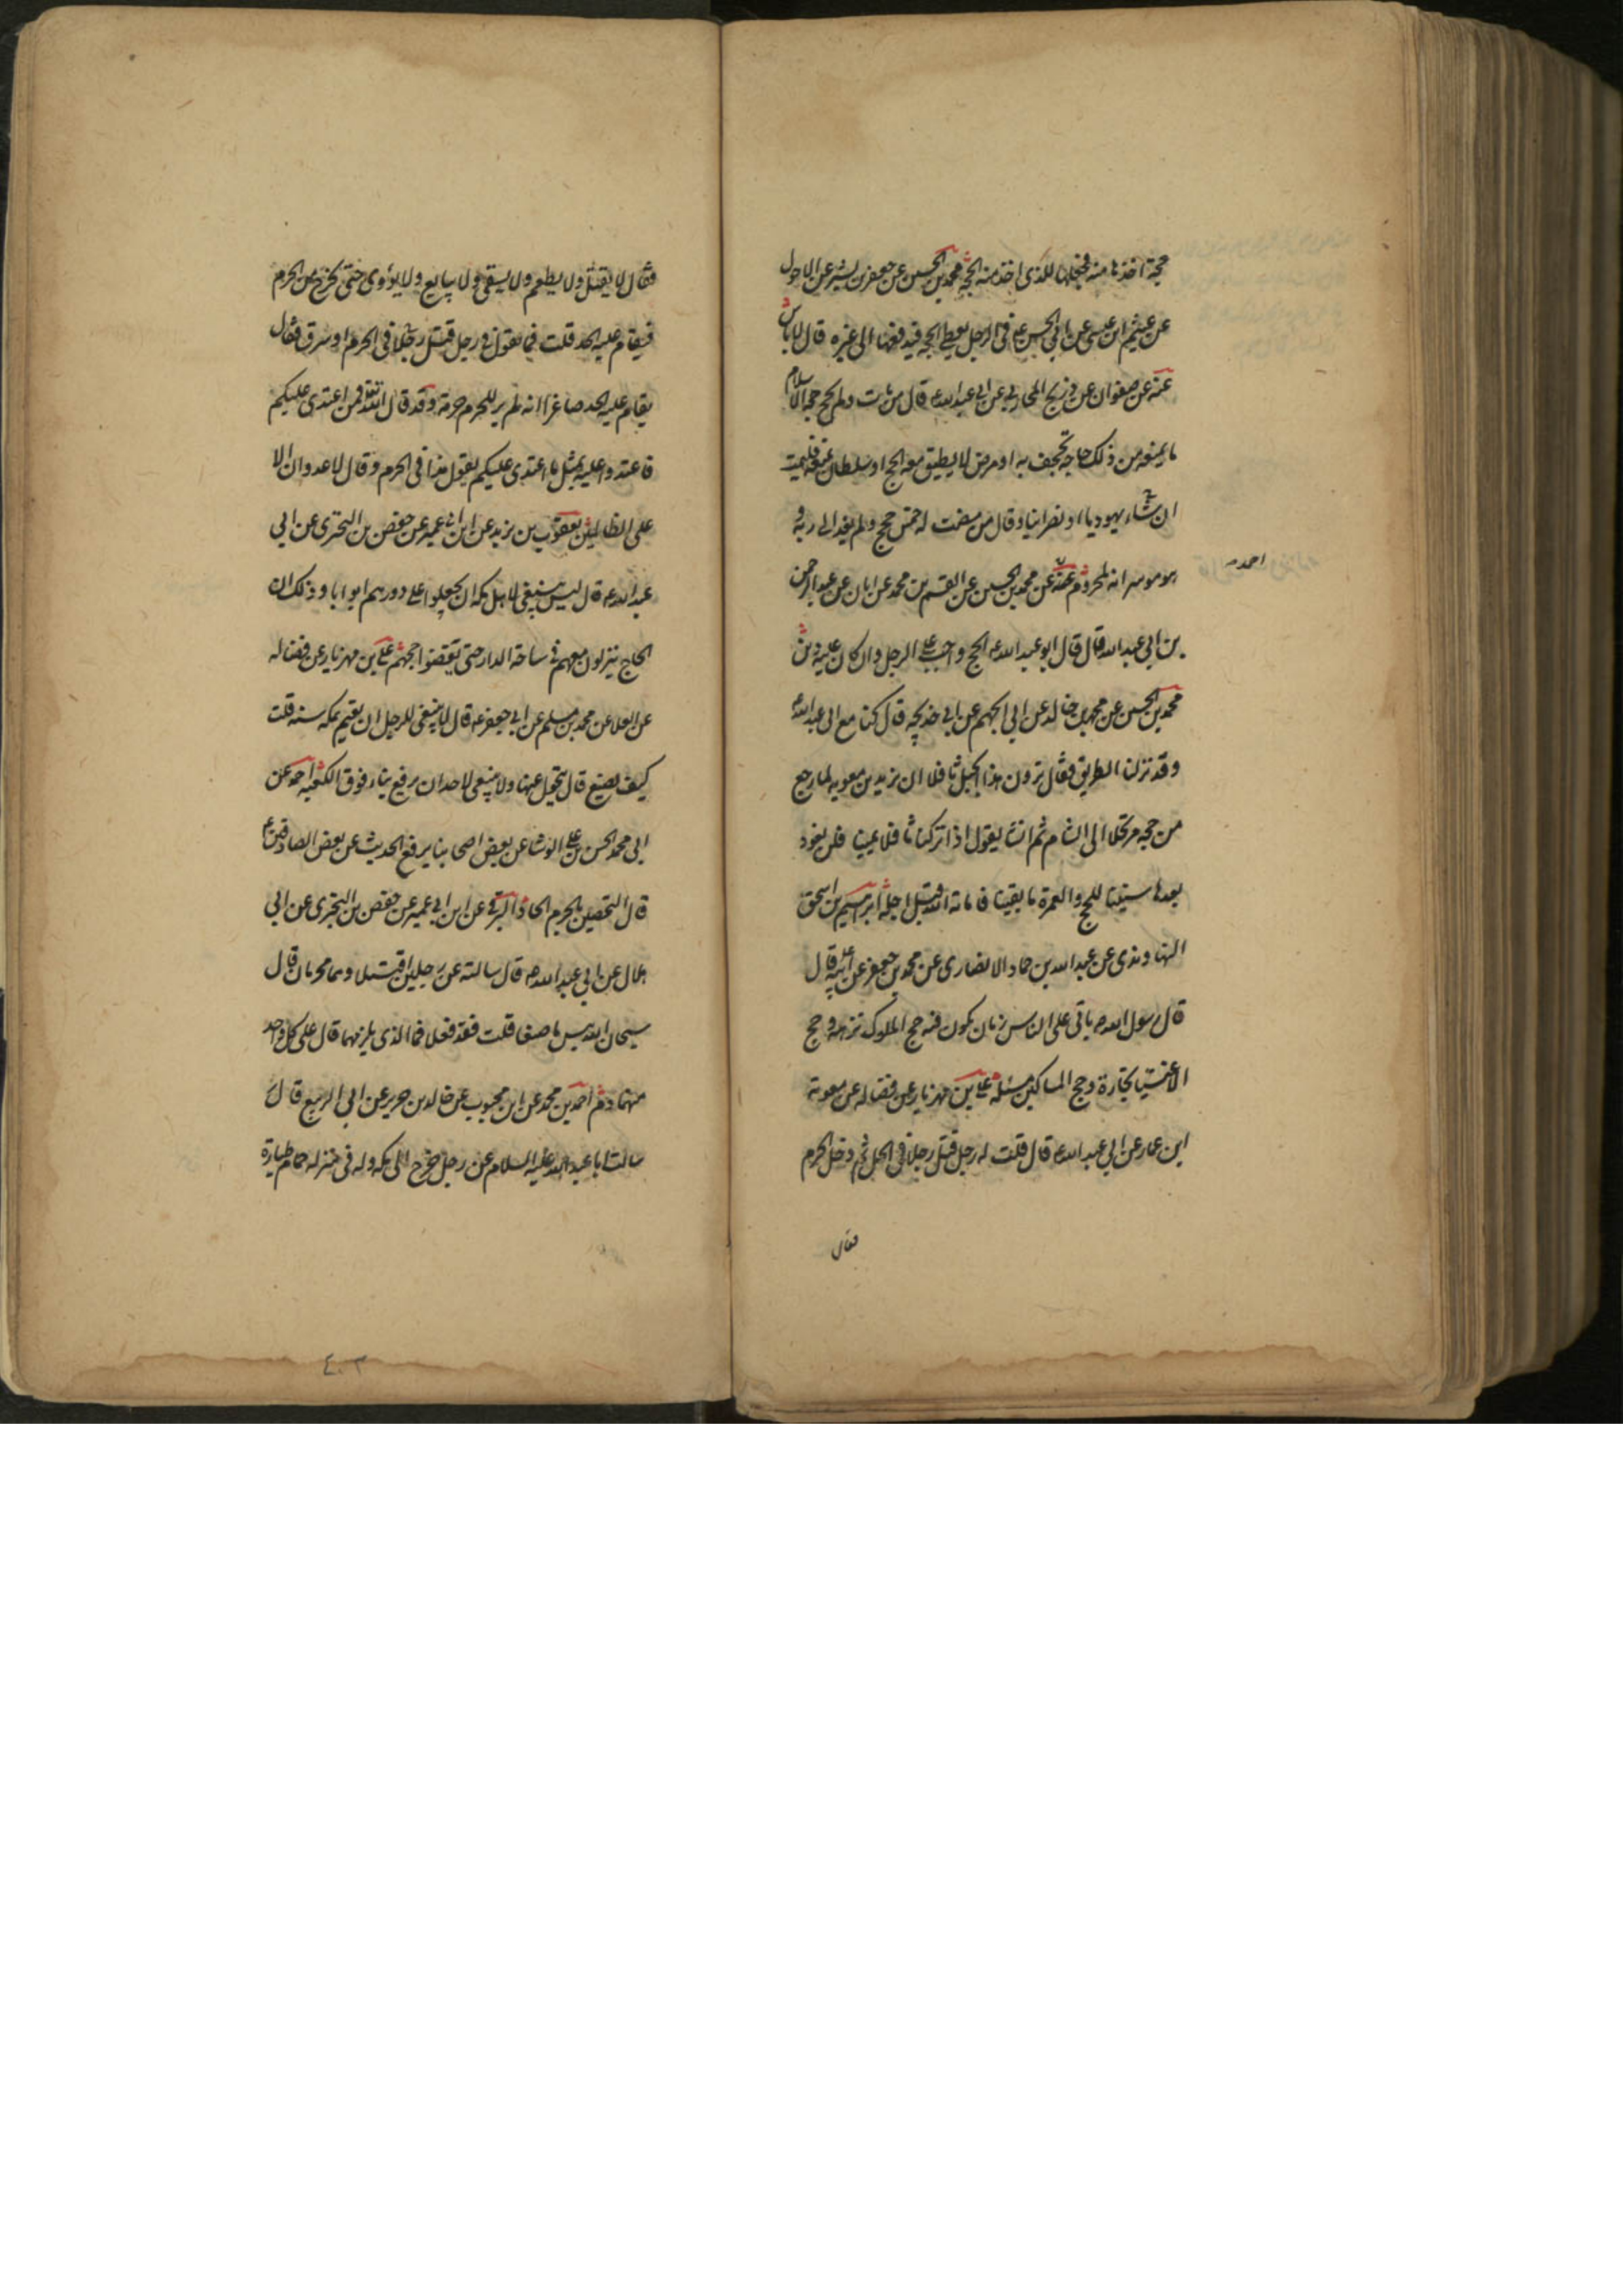 حجة اخذها منه فجعلها للذى اخذ منه الحجة محمد بن الحسين عن جعفر بن بشير عن الاحول
عن عثيم ابن عيسى عن ابى الحسن ع فى الرجل يعطى الحجة فيدفعها الى غيره قال لا باس
عنه عن صفوان عن ذريح المحاربى عن ابى عبد الله ع قال من مات ولم يحج حجة الاسلام
ما يمنعه من ذلك حاجة تجحف به او مرض لا يطيق معه الحج او سلطان يمنعه فليمت
ان شاء يهوديا او نصرانيا وقال من مضت له خمس حجج ولم يفد الى ربه و
هو موسر انه لمحروم عنه عن محمد بن الحسين عن القسم بن محمد عن ابان عن عبد الرحمن
احمد
بن ابى عبد الله قال قال ابو عبد الله ع الحج واجب على الرجل وان كان عليه دين
محمد بن الحسين عن محمد بن خالد عن ابى الجهم عن ابى خديجه قال كنا مع ابى عبد الله ع
وقد نزلنا الطريق فقال ترون هذا الجبل ثافلا ان يزيد بن معويه لما رجع
من حجه مرتحلا الى الشام ثم انشا يقول اذا تركنا ثافلا يمينا فلن نعود
بعدها سنينا للحج والعمرة ما بقينا فاماته الله قبل اجله ابرهيم بن اسحق
النهاوندى عن عبد الله بن حماد الانصارى عن محمد بن جعفر عن ابيه قال
قال رسول الله ص ياتى على الناس زمان يكون فيه حج الملوك نزهه و حج
الاغنيا تجارة وحج المساكين مسئلة على بن مهزيار عن فضاله عن معوية
ابن عمار عن ابى عبد الله ع قال قلت له رجل قتل رجلا فى الحل ثم دخل الحرم
فقال
فقال لا يقتل ولا يطعم ولا يسقى ولا يبايع ولا يؤوى حتى يخرج من الحرم
فيقام عليه الحد قلت فما تقول فى رجل قتل رجلا فى الحرم او سرق فقال
يقام عليه الحد صاغرا انه لم ير للحرم حرمة وقد قال الله تع فمن اعتدى عليكم
فاعتدوا عليه بمثل ما اعتدى عليكم يقول هذا فى الحرم وقال لا عدوان الا
على الظالمين يعقوب بن يزيد عن ابن ابى عمير عن حفص بن البخترى عن ابى
عبد الله ع قال ليس ينبغى لاهل مكه ان يجعلوا على دورهم ابوابا وذلك ان
الحاج ينزلون معهم فى ساحة الدار حتى يقضوا حجهم على بن مهزيار عن فضاله
عن العلا عن محمد بن مسلم عن ابى جعفر ع قال لا ينبغى للرجل ان يقيم بمكه سنه قلت
كيف يصنع قال يتحول عنها ولا ينبغى لاحد ان يرفع بناء فوق الكعبه احمد عن
ابى محمد الحسن بن على الوشا عن بعض اصحابنا يرفع الحديث عن بعض الصادقين ع
قال التحصين بالحرم الحاد البرقى عن ابن ابى عمير عن حفص بن البخترى عن ابى
هلال عن ابى عبد الله ع قال سالته عن رجلين اقتتلا وهما محرمان قال
سبحان الله بيس ما صنعا قلت فقد فعلا فما الذى يلزمهما قال على كل واحد
منهما دم احمد بن محمد عن ابن محبوب عن خالد بن جرير عن ابى الربيع قال
سالت ابا عبد الله عليه السلام عن رجل خرج الى مكه وله فى منزله حمام طيارة
٤٠٢